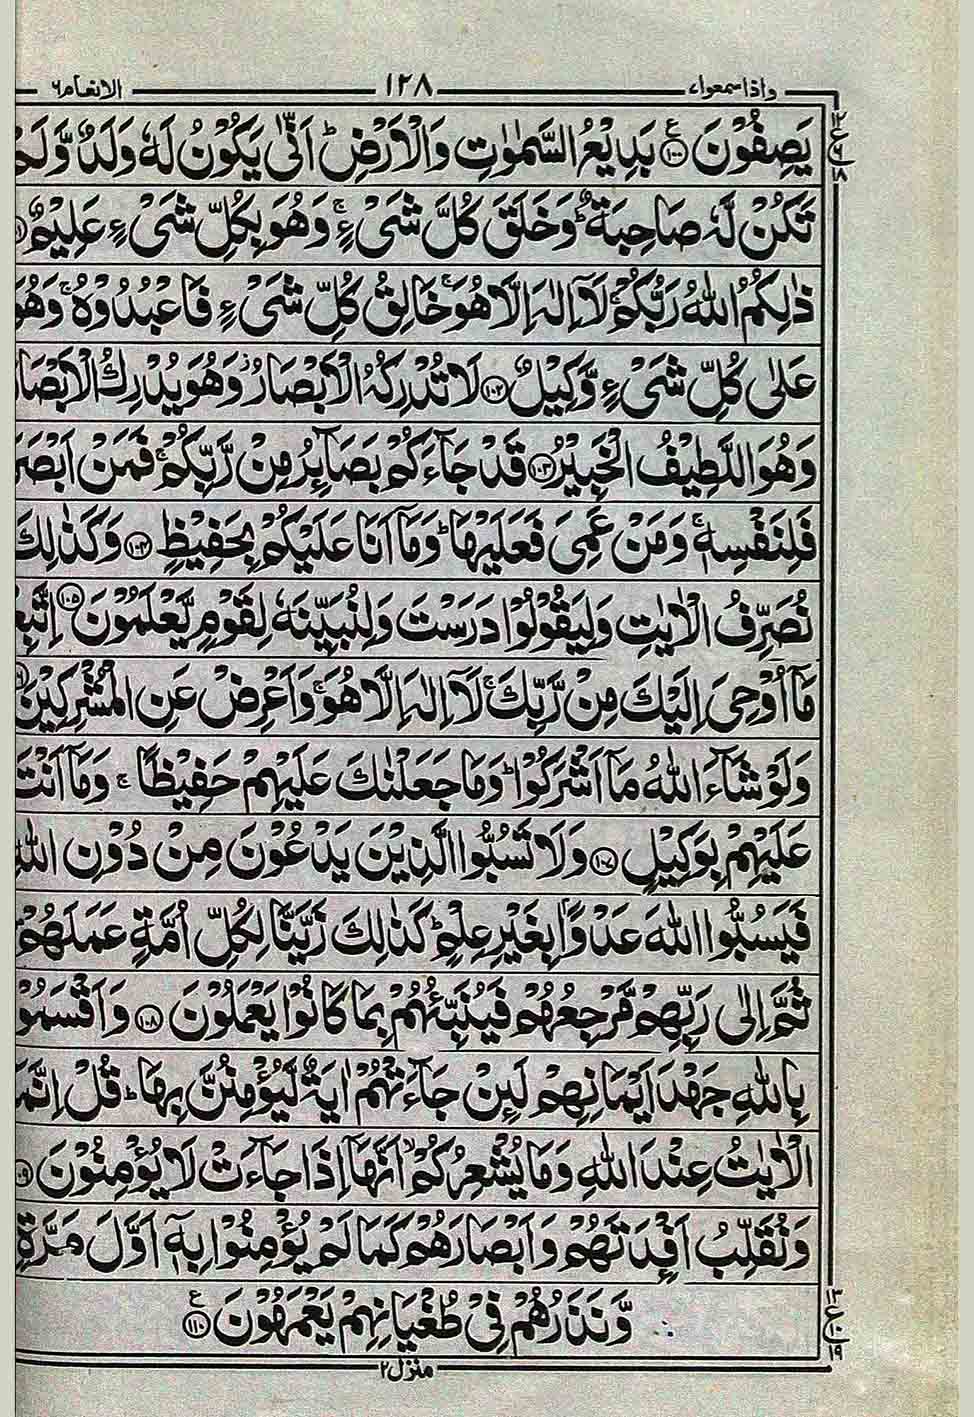 واذا سمعوا۷ ۱۲۸ الانعام۶
يَصِفُوْنَ ﴿۱۰۰﴾ بَدِيْعُ السَّمٰوٰتِ وَالْاَرْضِ ؕ اَنّٰى يَكُوْنُ لَهٗ وَلَدٌ وَّلَمْ
تَكُنْ لَّهٗ صَاحِبَةٌ ؕ وَخَلَقَ كُلَّ شَىْءٍ ۚ وَهُوَ بِكُلِّ شَىْءٍ عَلِيْمٌ
ذٰلِكُمُ اللّٰهُ رَبُّكُمْ ۚ لَاۤ اِلٰهَ اِلَّا هُوَ ۚ خَالِقُ كُلِّ شَىْءٍ فَاعْبُدُوْهُ ۚ وَهُوَ
عَلٰى كُلِّ شَىْءٍ وَّكِيْلٌ ﴿۱۰۲﴾ لَا تُدْرِكُهُ الْاَبْصَارُ ؗ وَهُوَ يُدْرِكُ الْاَبْصَارَ
وَهُوَ اللَّطِيْفُ الْخَبِيْرُ ﴿۱۰۳﴾ قَدْ جَآءَكُمْ بَصَآئِرُ مِنْ رَّبِّكُمْ ۚ فَمَنْ اَبْصَرَ
فَلِنَفْسِهٖ ۚ وَمَنْ عَمِىَ فَعَلَيْهَا ؕ وَمَاۤ اَنَا عَلَيْكُمْ بِحَفِيْظٍ ﴿۱۰۴﴾ وَكَذٰلِكَ
نُصَرِّفُ الْاٰيٰتِ وَلِيَقُوْلُوْا دَرَسْتَ وَلِنُبَيِّنَهٗ لِقَوْمٍ يَّعْلَمُوْنَ ﴿۱۰۵﴾ اِتَّبِعْ
مَاۤ اُوْحِىَ اِلَيْكَ مِنْ رَّبِّكَ ۚ لَاۤ اِلٰهَ اِلَّا هُوَ ۚ وَاَعْرِضْ عَنِ الْمُشْرِكِيْنَ
وَلَوْ شَآءَ اللّٰهُ مَاۤ اَشْرَكُوْا ؕ وَمَا جَعَلْنٰكَ عَلَيْهِمْ حَفِيْظًا ۚ وَمَاۤ اَنْتَ
عَلَيْهِمْ بِوَكِيْلٍ ﴿۱۰۷﴾ وَلَا تَسُبُّوا الَّذِيْنَ يَدْعُوْنَ مِنْ دُوْنِ اللّٰهِ
فَيَسُبُّوا اللّٰهَ عَدْوًۢا بِغَيْرِ عِلْمٍ ؕ كَذٰلِكَ زَيَّنَّا لِكُلِّ اُمَّةٍ عَمَلَهُمْ
ثُمَّ اِلٰى رَبِّهِمْ مَّرْجِعُهُمْ فَيُنَبِّئُهُمْ بِمَا كَانُوْا يَعْمَلُوْنَ ﴿۱۰۸﴾ وَاَقْسَمُوْا
بِاللّٰهِ جَهْدَ اَيْمَانِهِمْ لَئِنْ جَآءَتْهُمْ اٰيَةٌ لَّيُؤْمِنُنَّ بِهَا ؕ قُلْ اِنَّمَا
الْاٰيٰتُ عِنْدَ اللّٰهِ وَمَا يُشْعِرُكُمْ ۙ اَنَّهَاۤ اِذَا جَآءَتْ لَا يُؤْمِنُوْنَ
وَنُقَلِّبُ اَفْئِدَتَهُمْ وَاَبْصَارَهُمْ كَمَا لَمْ يُؤْمِنُوْا بِهٖۤ اَوَّلَ مَرَّةٍ
وَّنَذَرُهُمْ فِىْ طُغْيَانِهِمْ يَعْمَهُوْنَ ﴿۱۱۰﴾ ع
منزل۲